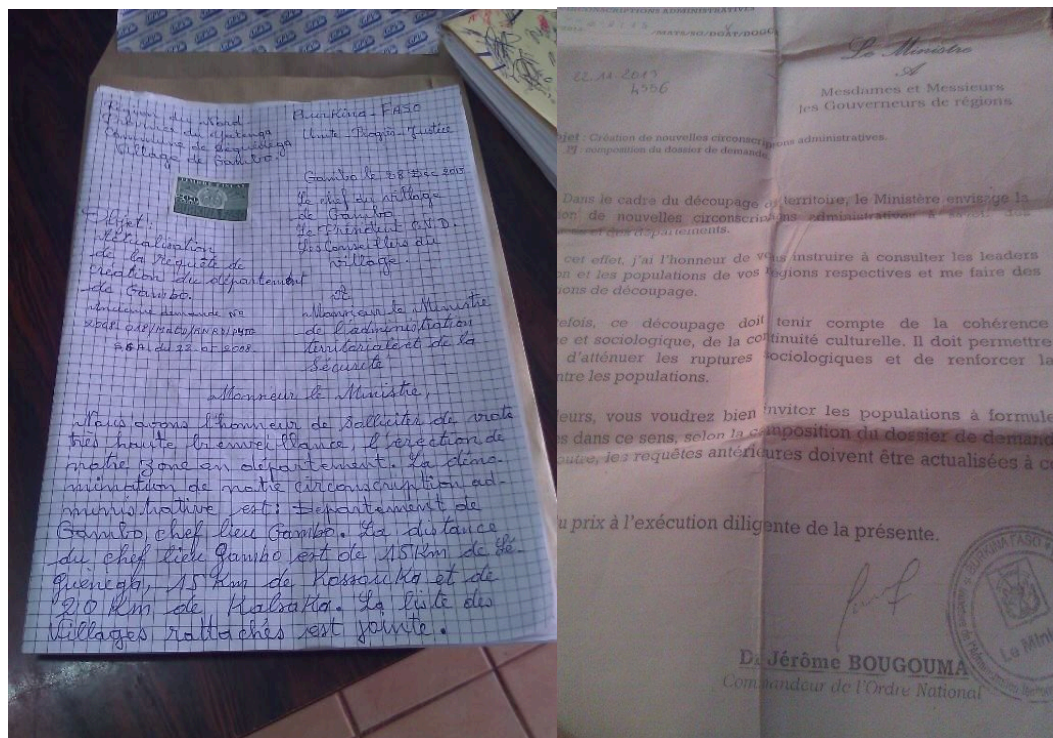 Région du Nord
Province du Yatenga
Commune de Séguénéga
Village de Gambo.
Burkina-FASO
Unité-Progrès-Justice
Gambo le 28 Dec
Le chef du village
de Gambo
Le Président C.V.D.
Les Conseillers du
village.
Objet:
Actualisation
de la requête de
création du département
de Gambo.
Ancienne demande No
du 22-07-2008.
A
Monsieur le Ministre
de l'administration
territoriale et de la
Sécurité
Monsieur le Ministre,
Nous avons l'honneur de solliciter de votre
très haute bienveillance, l'érection de
notre zone en département. La déno-
mination de notre circonscription ad-
ministrative est: Département de
Gambo, chef lieu Gambo. La distance
du chef lieu Gambo est de 15 Km de Sé-
guénéga, 15 Km de Kossouka et de
20 Km de Kalsaka. La liste des
villages rattachés est jointe.
CONSCRIPTIONS ADMINISTRATIVES
/MATS/SG/DGAT/DOCC
22.11.2013
4556
Le Ministre
A
Mesdames et Messieurs
les Gouverneurs de régions
jet : Création de nouvelles circonscriptions administratives.
PJ : composition du dossier de demande.
Dans le cadre du découpage du territoire, le Ministère envisage la
ion de nouvelles circonscriptions administratives à savoir des
es et des départements.
cet effet, j'ai l'honneur de vous instruire à consulter les leaders
on et les populations de vos régions respectives et me faire des
ions de découpage.
efois, ce découpage doit tenir compte de la cohérence
e et sociologique, de la continuité culturelle. Il doit permettre
d'atténuer les ruptures sociologiques et de renforcer la
ntre les populations.
leurs, vous voudrez bien inviter les populations à formule
s dans ce sens, selon la composition du dossier de demand
outre, les requêtes antérieures doivent être actualisées à c
u prix à l'exécution diligente de la présente.
BURKINA FASO
Le Mini
Dr Jérôme BOUGOUMA
Commandeur de l'Ordre National